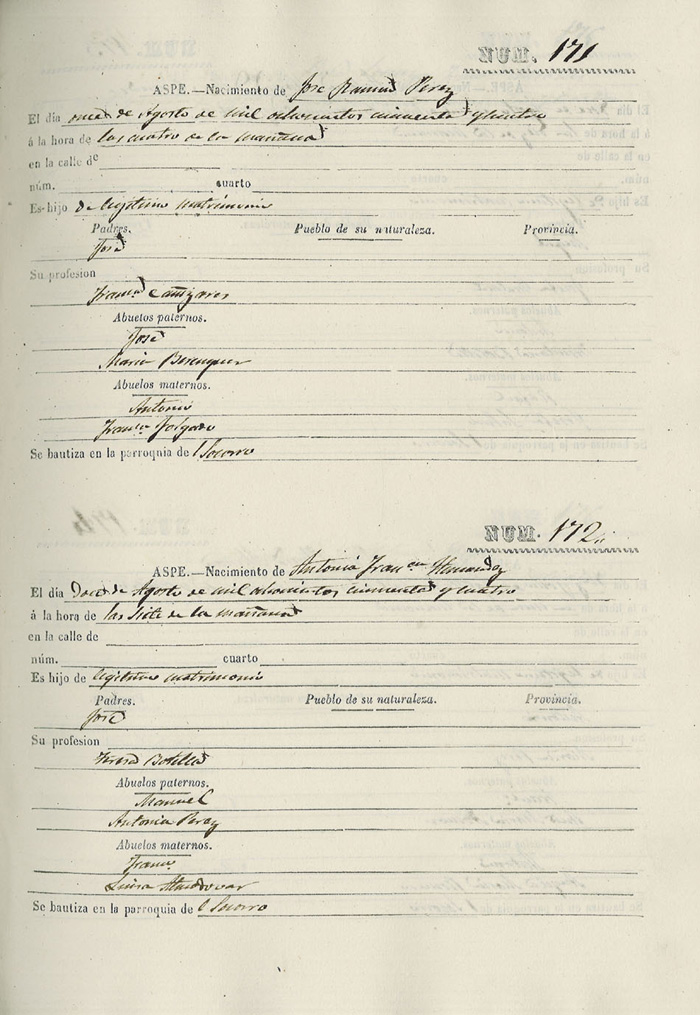 NUM. 171
ASPE.—Nacimiento de José Ramon Perez
El dia once de Agosto de mil ochocientos cincuenta y cuatro
á la hora de las cuatro de la mañana
en la calle de
núm. cuarto
Es hijo de legitimo matrimonio
Padres. Pueblo de su naturaleza. Provincia.
José
Su profesion
Franca Cañizares
Abuelos paternos.
José
Maria Berenguer
Abuelos maternos.
Antonio
Franca
Se bautiza en la parroquia del Socorro
NUM. 172
ASPE.—Nacimiento de Antonia Francca Hernandez
El dia Doce de Agosto de mil ochocientos cincuenta y cuatro
á la hora de las siete de la mañana
en la calle de
núm. cuarto
Es hijo de legitimo matrimonio
Padres. Pueblo de su naturaleza. Provincia.
José
Su profesion
Teresa Botella
Abuelos paternos.
Manuel
Antonia Perez
Abuelos maternos.
Franco
Luisa Almodovar
Se bautiza en la parroquia de l Socorro